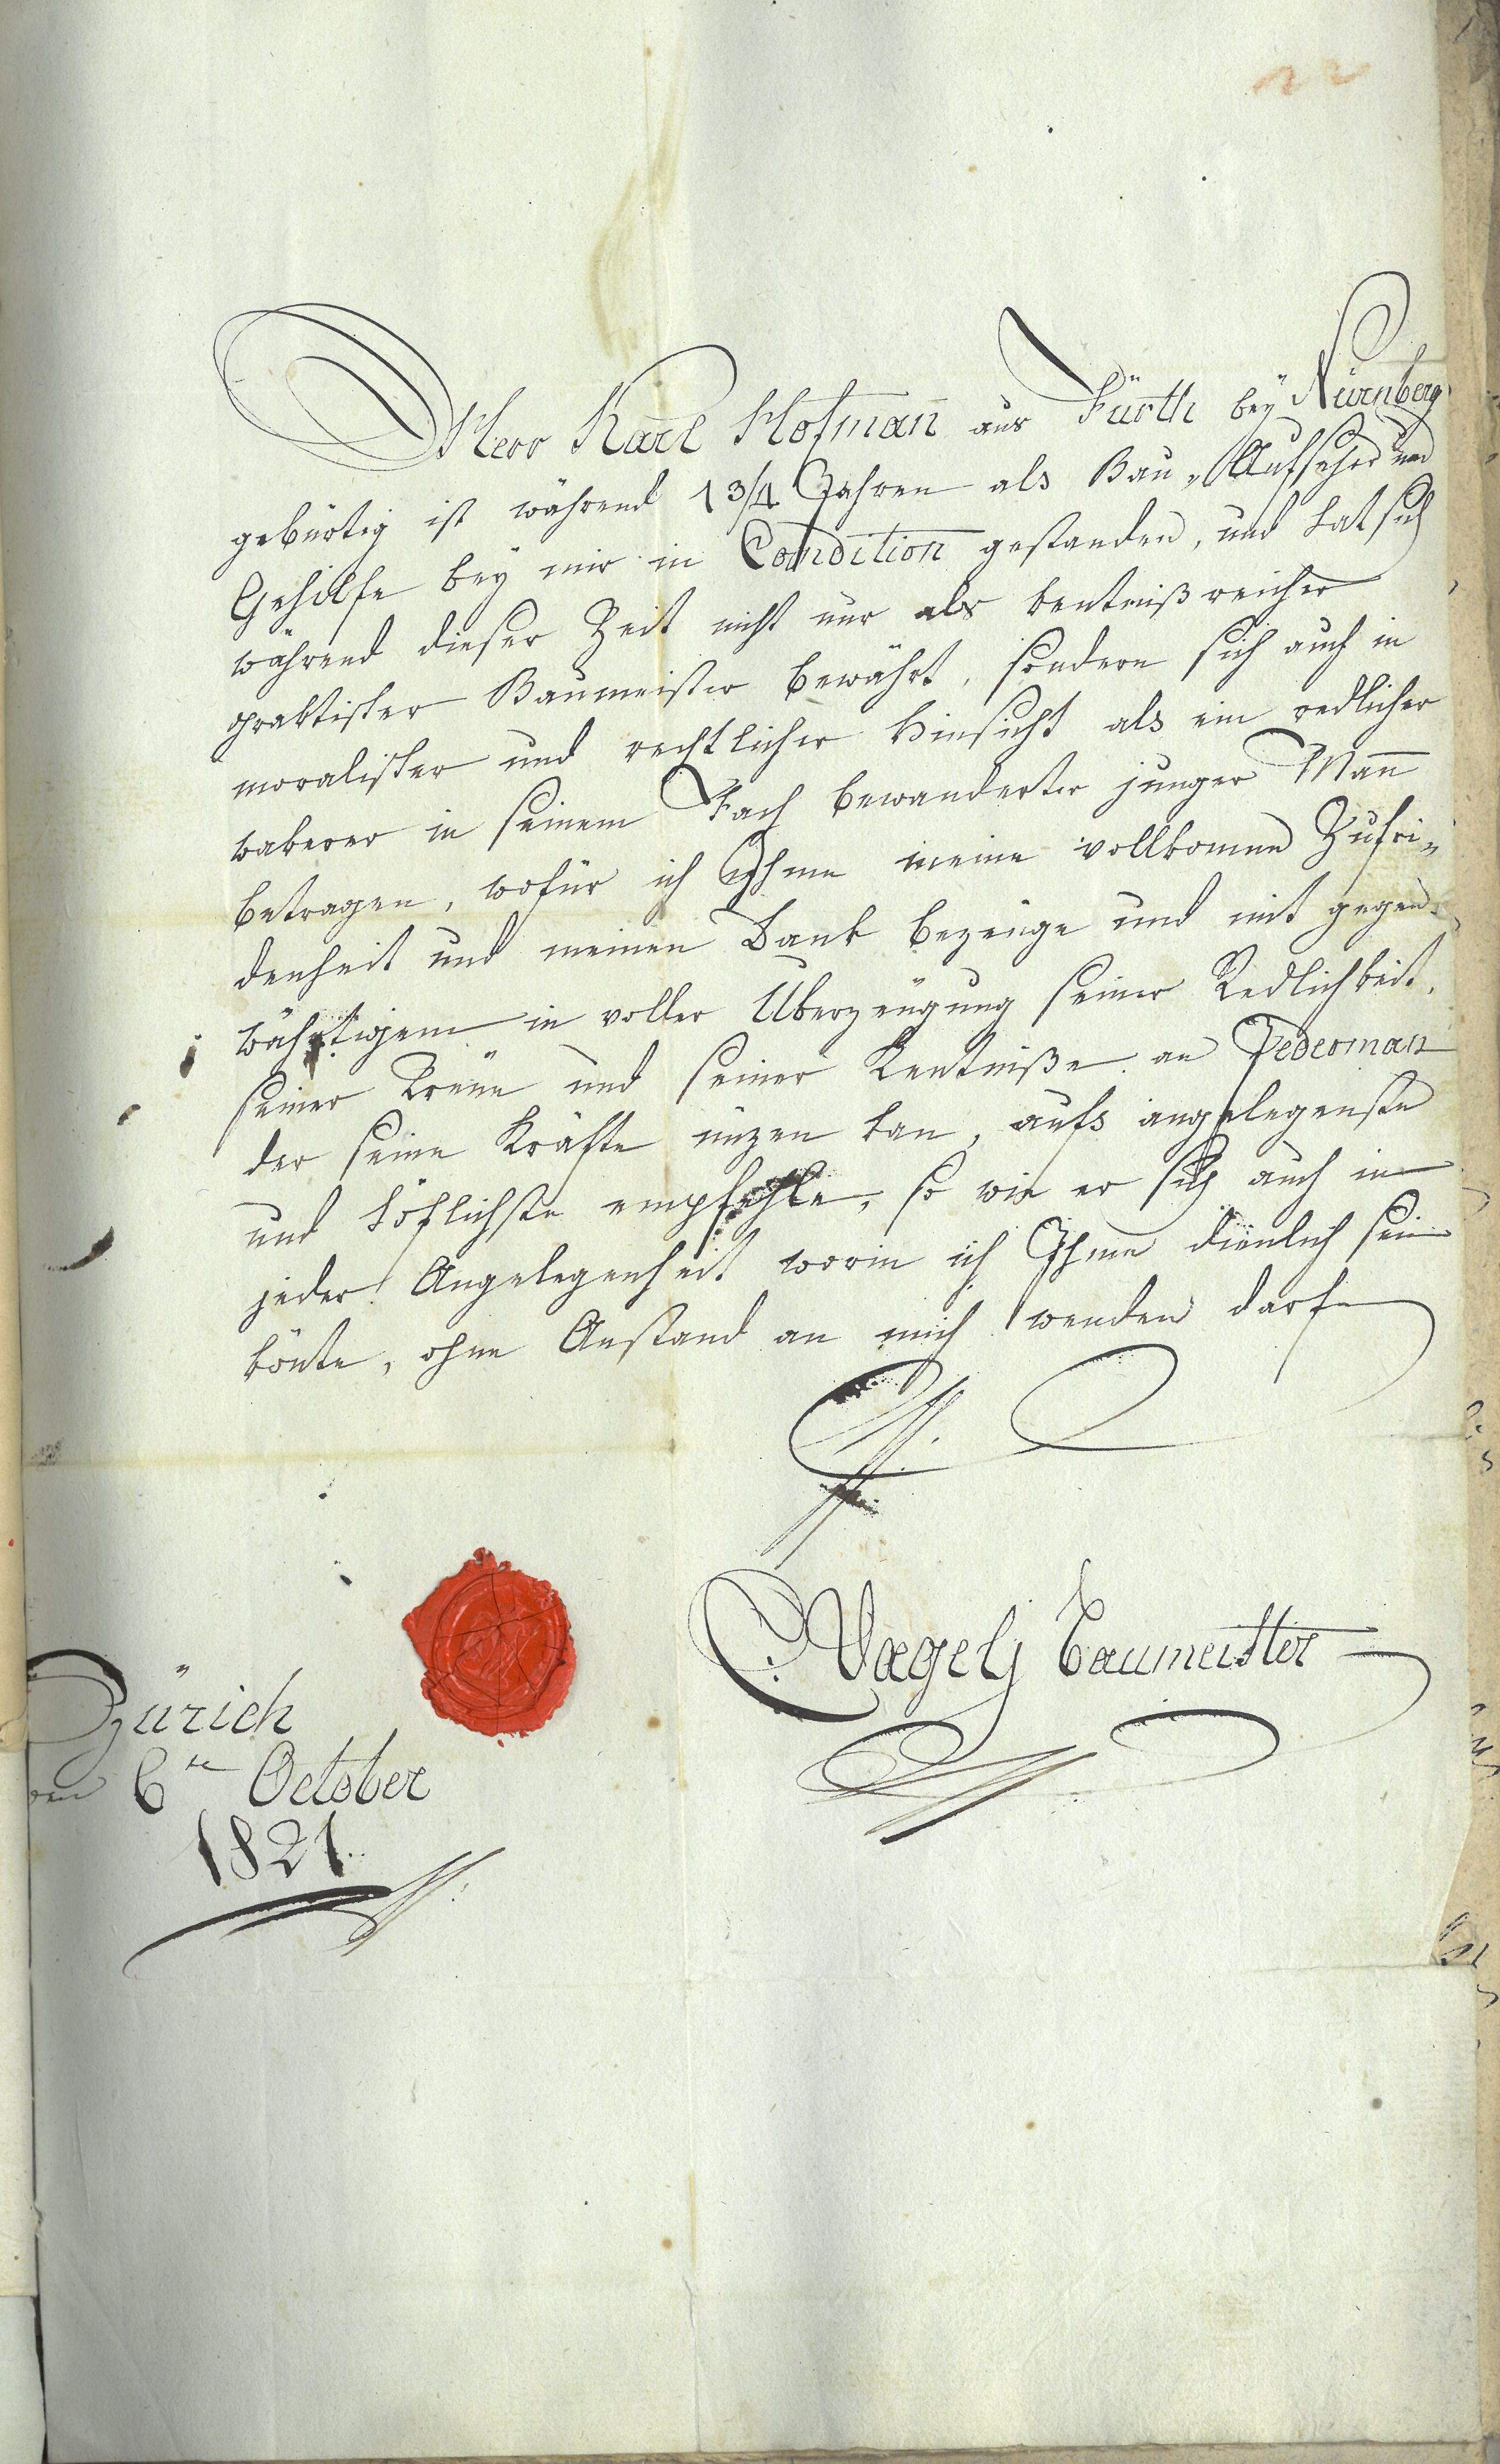 Herr Karl Hofmañ aus Fürth beÿ Nürnberg
gebürtig ist während 1 3/4 Jahren als Bau„Aufseher und
Gehilfe beÿ mir in Condition gestanden, und hat sich
während dieser Zeit nicht nur als kentnißreicher
praktischer Baumeister bewährt, sondern sich auch in
moralischer und rechtlicher Hinsicht als ein redlicher
wakerer in seinem Fach bewanderter junger Mañ
betragen, wofür ich Ihme meine vollkomne Zufri„
denheit und meinen Dank bezeüge und mit gegen„
währtigem in voller Überzeügung seiner Redlichkeit,
seiner Treüe und seiner Kentniße an Jederman
der seine Kräfte nüzen kan, aufs angelegenste
und höflichste empfehle, so wie er sich auch in
jeder Angelegenheit worin ich Ihme dienlich sein
könte, ohne Anstand an mich wenden darf
C. Vægelj Baumeister
Zürich
den 6te October
1821.